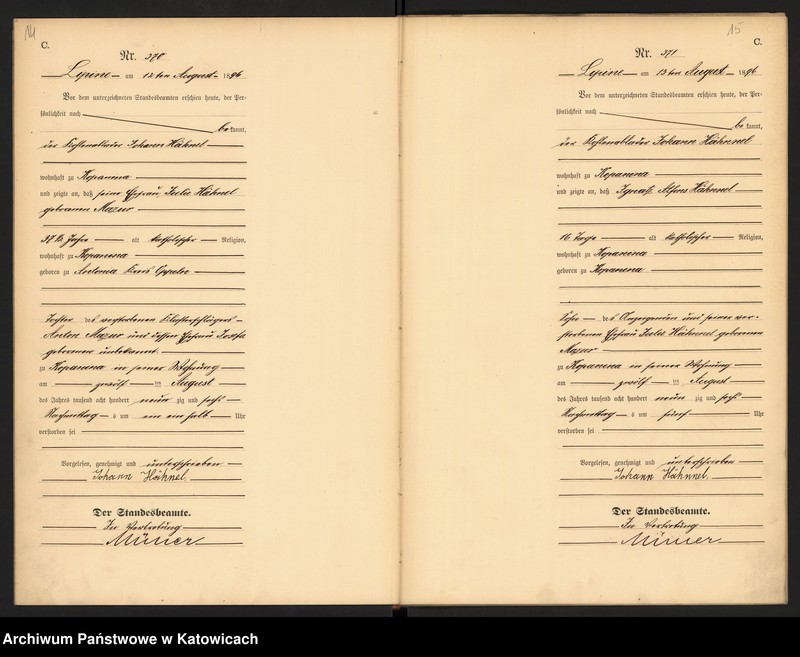 14
C.
Nr. 370
Lipine am 12ten August 1896
Vor dem unterzeichneten Standesbeamten erschien heute, der Per-
sönlichkeit nach
bekannt,
der Kohlenablader Johann Hähnel
wohnhaft zu Kopanina
und zeigte an, daß seine Ehefrau Julie Hähnel
geborenen Mazur
37 Jahre alt katholischer Religion,
wohnhaft zu Kopanina
geboren zu Antonia Kreis Oppeln
Tochter des verstorbenen
Anton Mazur und dessen Ehefrau Josefa
geborenen unbekannt
zu Kopanina in seiner Wohnung
am zwölf ten August
des Jahres tausend acht hundert neun zig und sechs
Nachmittag s um ein ein halb Uhr
verstorben sei
Vorgelesen, genehmigt und unterschrieben
Johann Hähnel
Der Standesbeamte.
In Vertretung
15
C.
Nr. 371
Lipine am 13ten August 1896
Vor dem unterzeichneten Standesbeamten erschien heute, der Per-
sönlichkeit nach
bekannt,
der Kohlenablader Johann Hähnel
wohnhaft zu Kopanina
und zeigte an, daß Ignatz Alfons Hähnel
16 Tage alt katholischer Religion,
wohnhaft zu Kopanina
geboren zu Kopanina
Sohn des Anzeigenden und seiner ver-
storbenen Ehefrau Julie Hähnel geborenen
Mazur
zu Kopanina in seiner Wohnung
am zwölf ten August
des Jahres tausend acht hundert neun zig und sechs
Nachmittag s um fünf Uhr
verstorben sei
Vorgelesen, genehmigt und unterschrieben
Johann Hähnel
Der Standesbeamte.
In Vertretung
Archiwum Państwowe w Katowicach